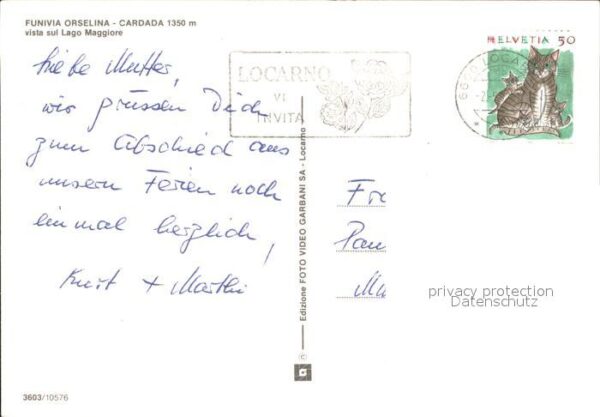 FUNIVIA ORSELINA - CARDADA 1350 m
vista sul Lago Maggiore
Liebe Mutter,
wir grüssen Dich
zum Abschied aus
unsern Ferien noch
einmal herzlich,
Kurt + Marthi
LOCARNO
VI
INVITA
HELVETIA 50
6600 LOCARNO
Edizione FOTO VIDEO GARBANI SA - Locarno
©
privacy protection
Datenschutz
3603/10576